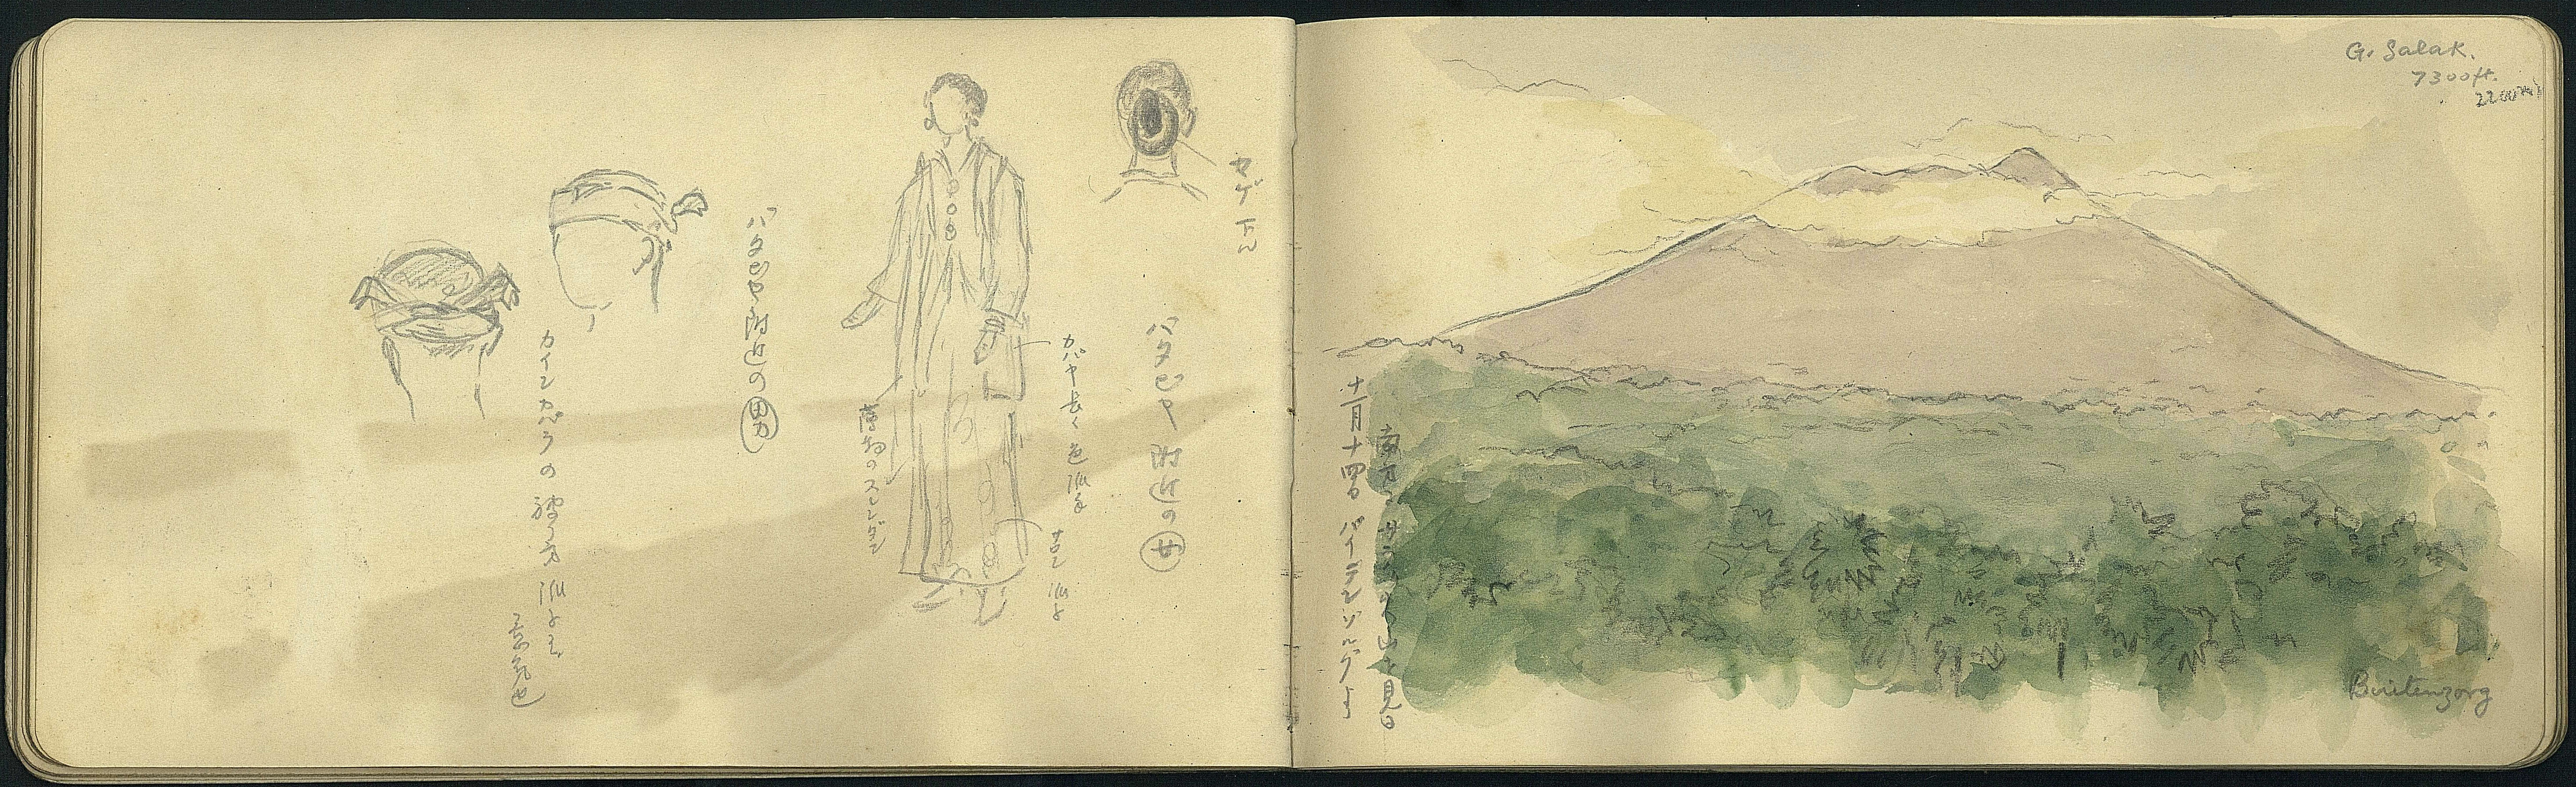 マゲ下ル
バタビヤ附近の女
カバヤ長く色派手
サロン派手
薄物のスレンダン
バタビヤ附近の男
カインカパラの被り方派手
G. Salak.
7300ft.
2200m
十一月十四日 バイテンゾルグより
南方の サラックの山を見る
Buitenzorg